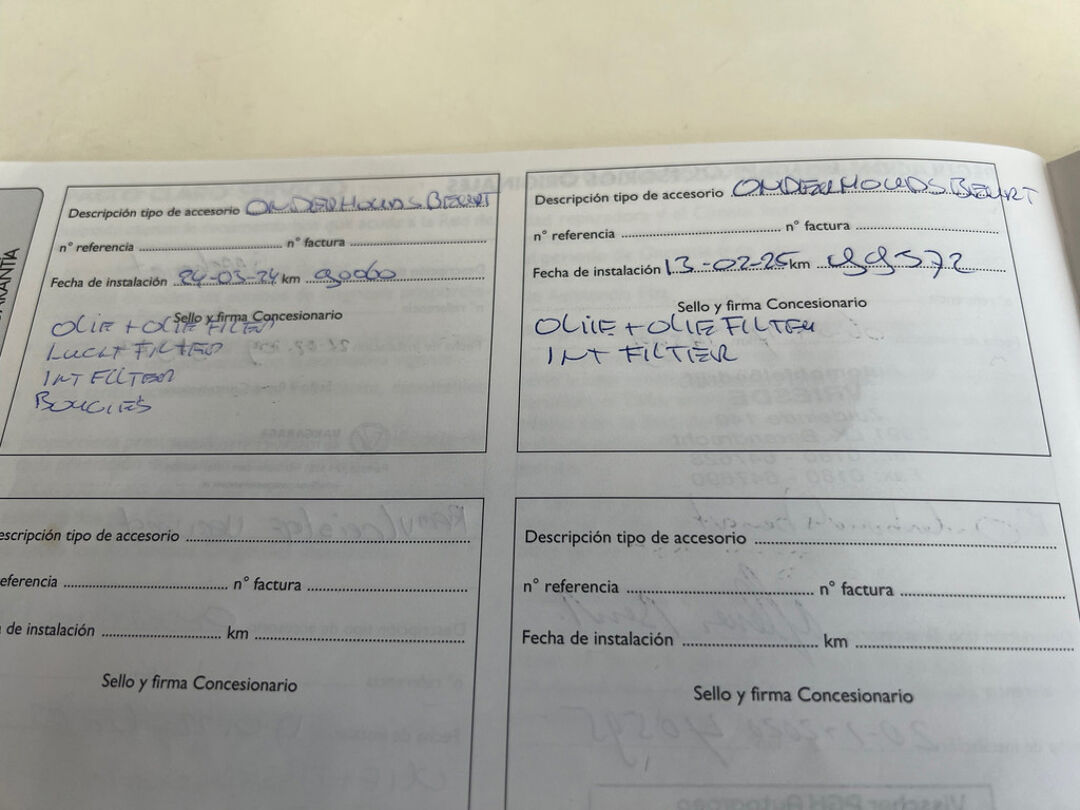 GARANTIA
Descripción tipo de accesorio ONDERHOUDS BEURT
n° referencia n° factura
Fecha de instalación 24-03-24 km
Sello y firma Concesionario
OLIE + OLIE FILTER
LUCHT FILTER
INT FILTER
BOUGIES
Descripción tipo de accesorio ONDERHOUDS BEURT
n° referencia n° factura
Fecha de instalación 13-02-25 km 99572
Sello y firma Concesionario
OLIIE + OLIE FILTER
INT FILTIER
escripción tipo de accesorio
eferencia n° factura
de instalación km
Sello y firma Concesionario
Descripción tipo de accesorio
n° referencia n° factura
Fecha de instalación km
Sello y firma Concesionario